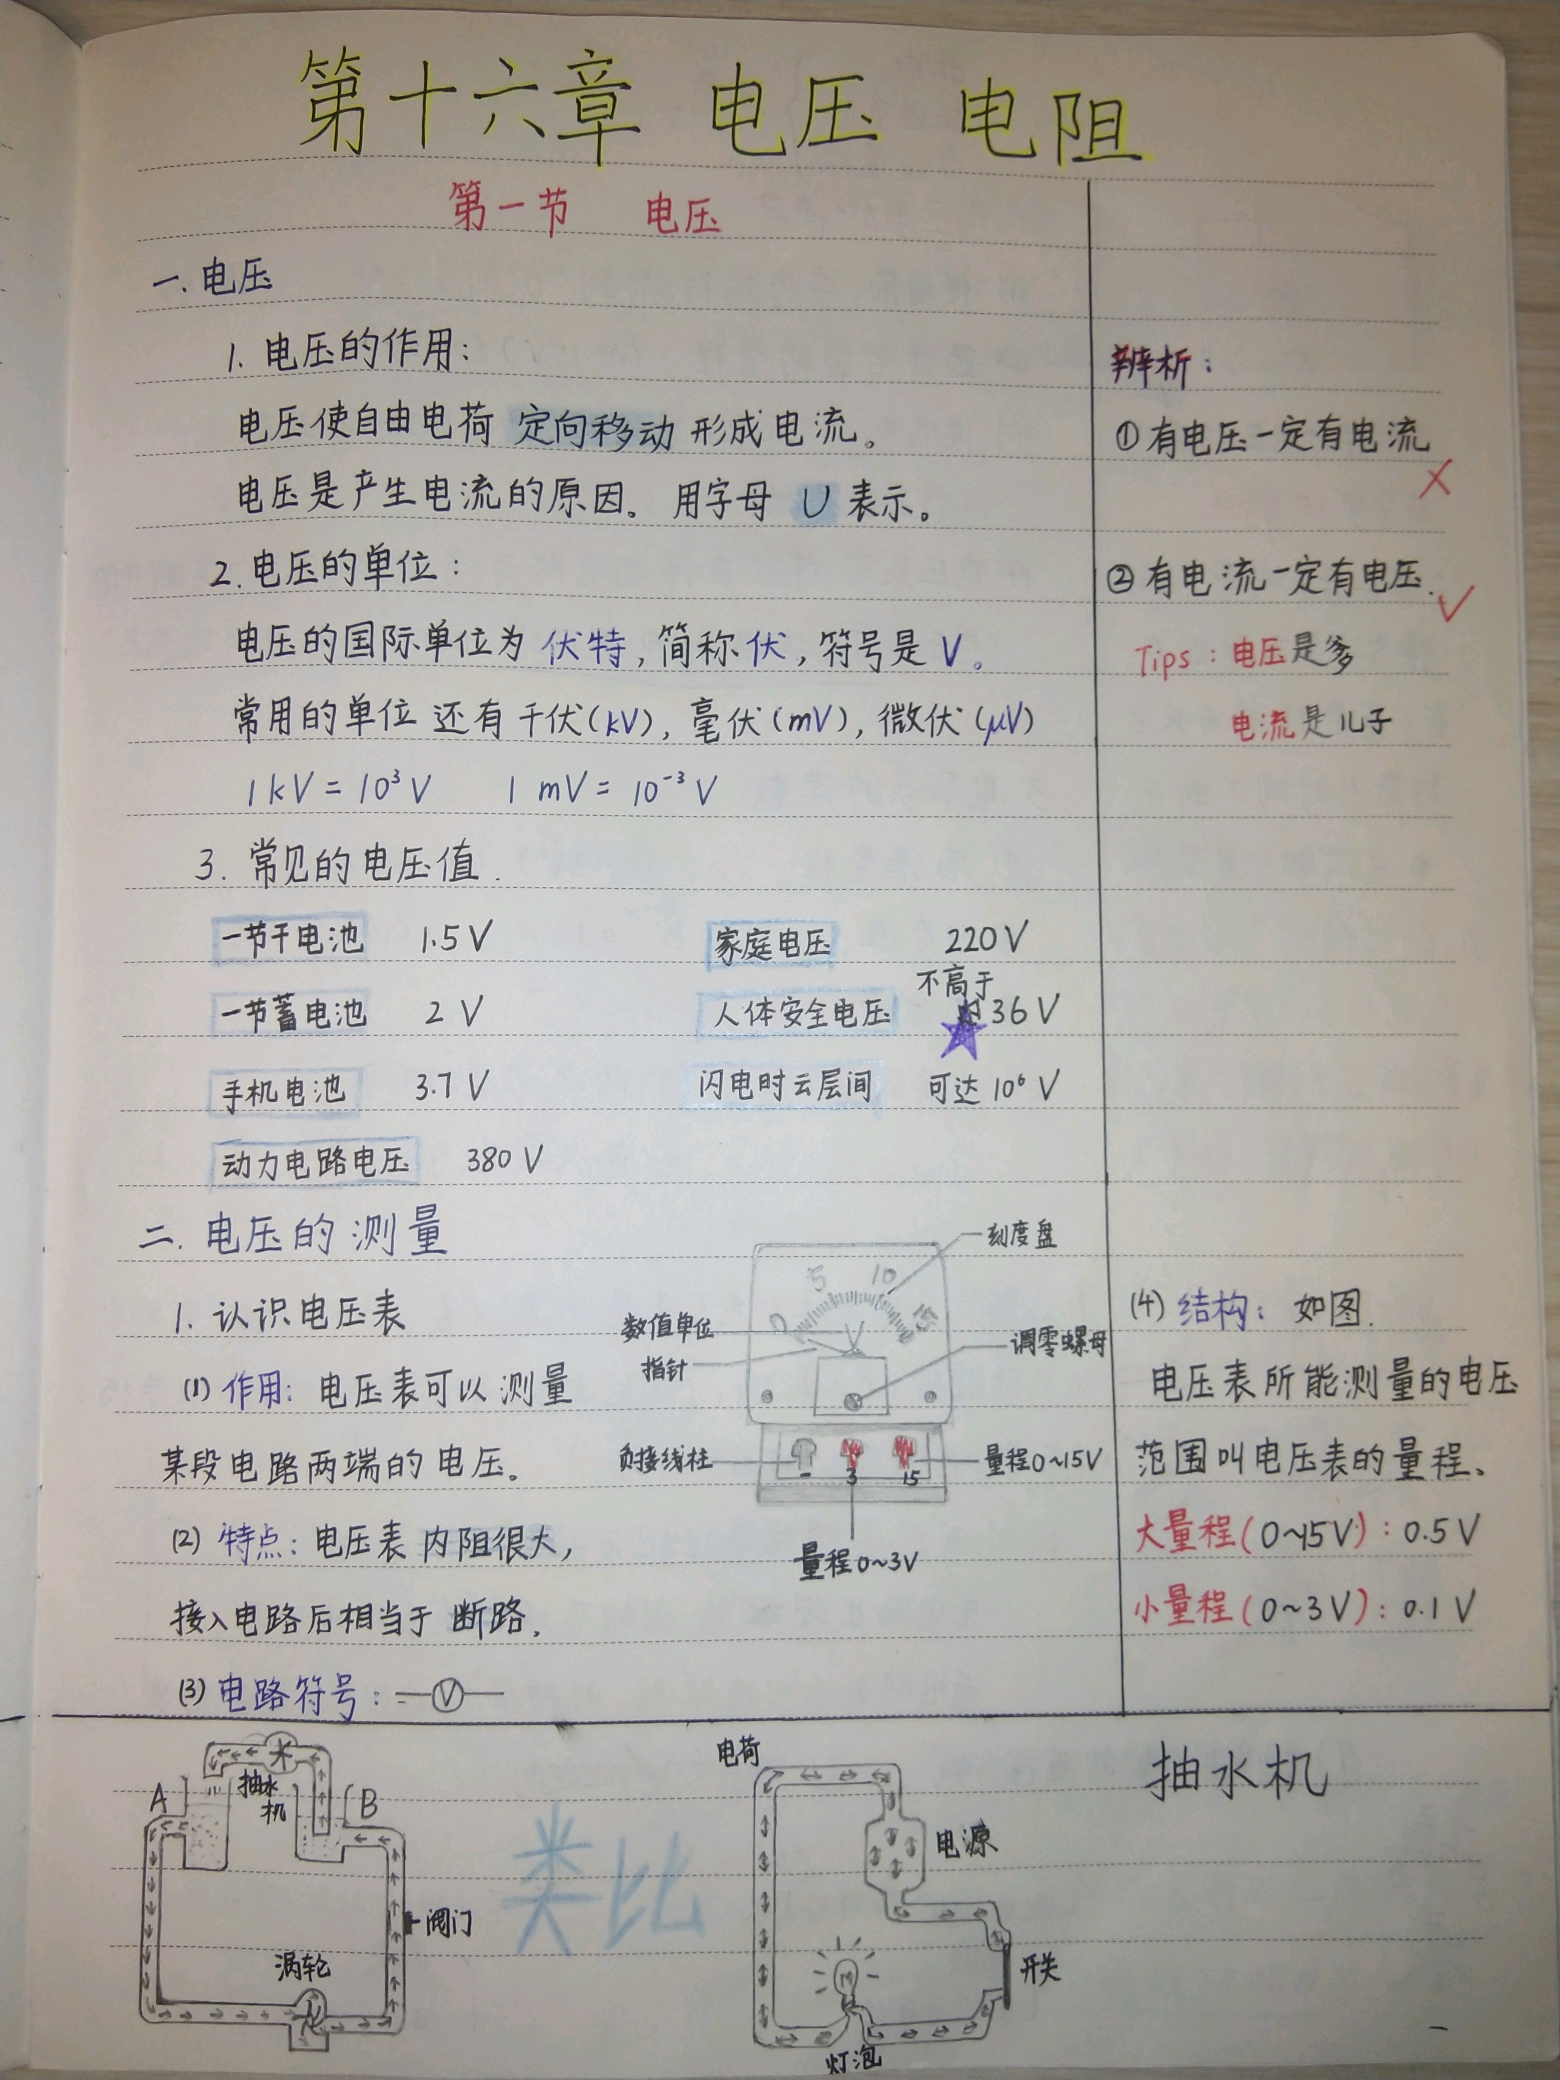 第十六章 电压 电阻
第一节 电压
一.电压
1. 电压的作用:
电压使自由电荷 定向移动 形成电流。
电压是产生电流的原因。用字母 U 表示。
2.电压的单位:
电压的国际单位为 伏特,简称伏,符号是 V。
常用的单位 还有千伏(kV),毫伏(mV),微伏(μV)
1kV=10³V 1 mV=10⁻³V
3. 常见的电压值.
一节干电池 1.5V 家庭电压 220V
一节蓄电池 2 V 人体安全电压 不高于 36V
手机电池 3.7 V 闪电时云层间 可达 10⁶ V
动力电路电压 380 V
二. 电压的测量
1. 认识电压表
(1) 作用: 电压表可以 测量
某段电路两端的电压。
(2) 特点: 电压表 内阻很大,
接入电路后相当于 断路.
(3) 电路符号: V
辨析:
①有电压一定有电流 ×
②有电流一定有电压. √
Tips: 电压是爹
电流是儿子
刻度盘
0 5 10 15
V
数值单位
指针
调零螺母
负接线柱
量程0~15V
- 3 15
量程0~3V
(4) 结构: 如图.
电压表所能测量的电压
范围叫电压表的量程、
大量程(0~15V): 0.5V
小量程(0~3V): 0.1 V
A
抽水
机
B
阀门
涡轮
类比
电荷
电源
开关
灯泡
抽水机